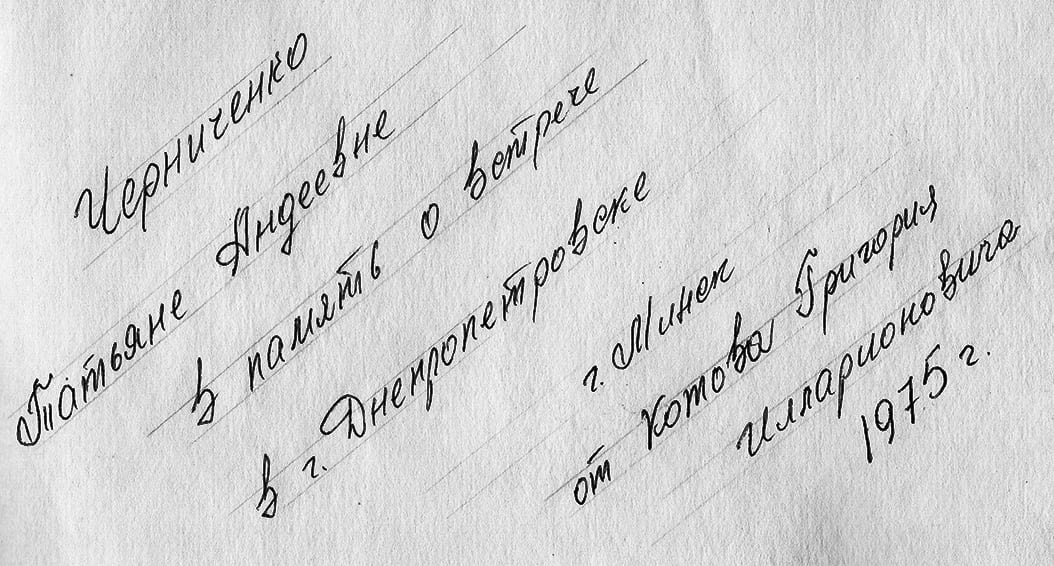 Черниченко
Татьяне Андеевне
в память о встрече
в г. Днепропетровске
г. Минск
от Котова Григория
Илларионовича
1975 г.